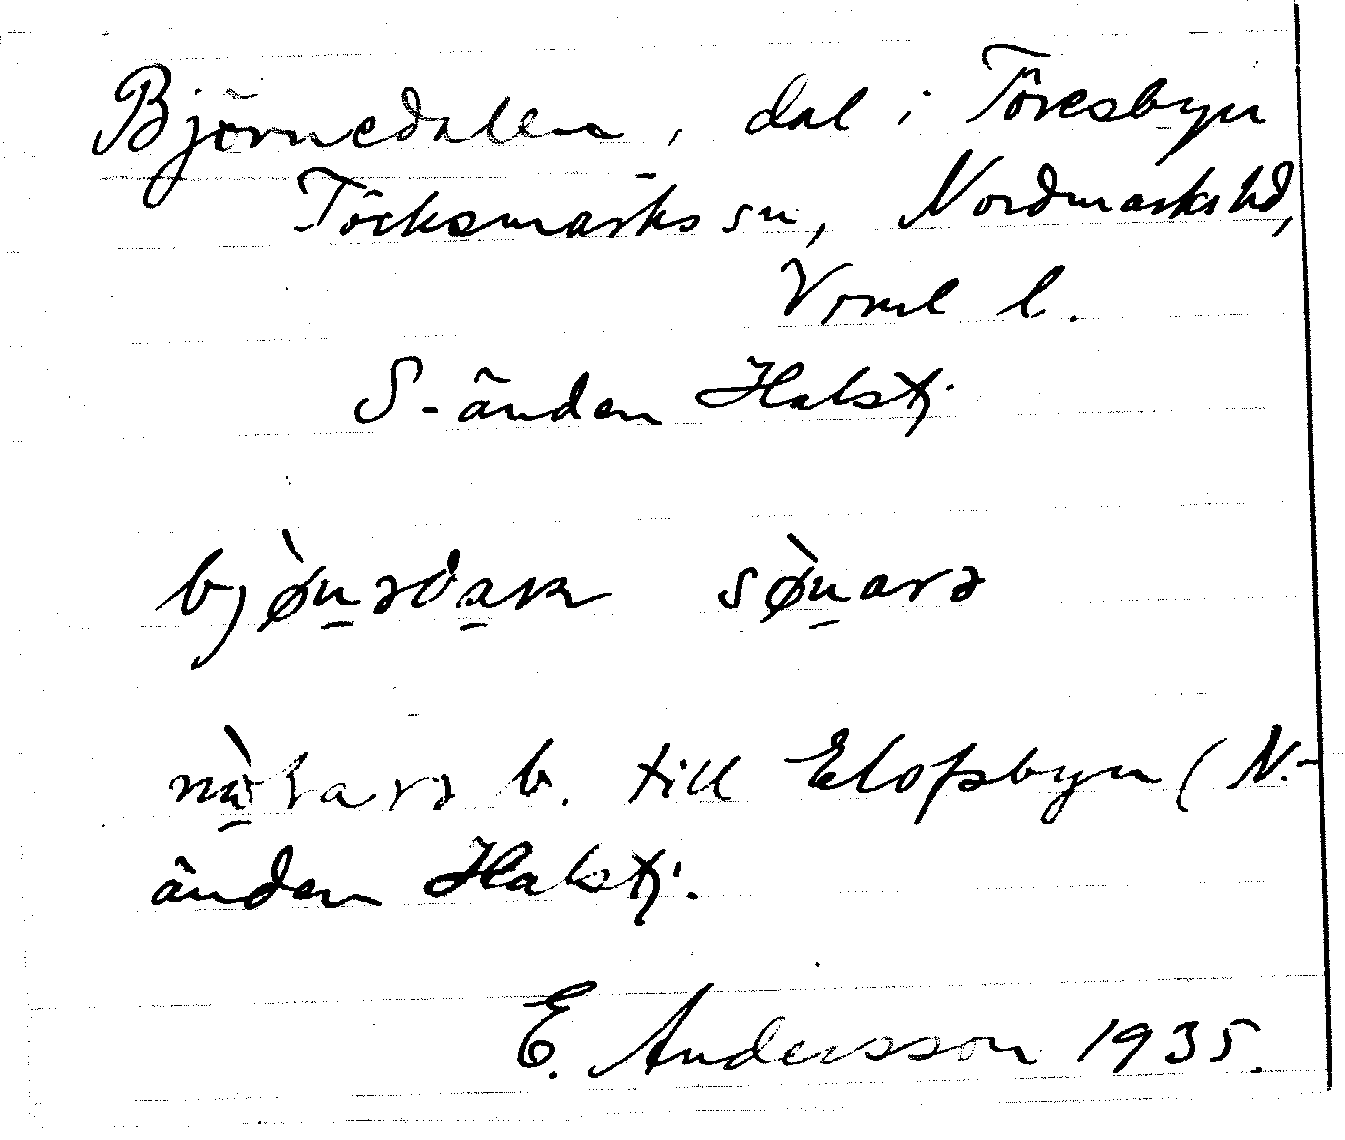 Björnedalen, dal i Töresbyn
Töcksmarks sn, Nordmarks hd,
Vrml l.
S-änden Halstj.
bjø̀nədan sø̀narə
nò̱ arə b. till Elofsbyn (N.-
änden Halstj.
E. Andersson 1935.